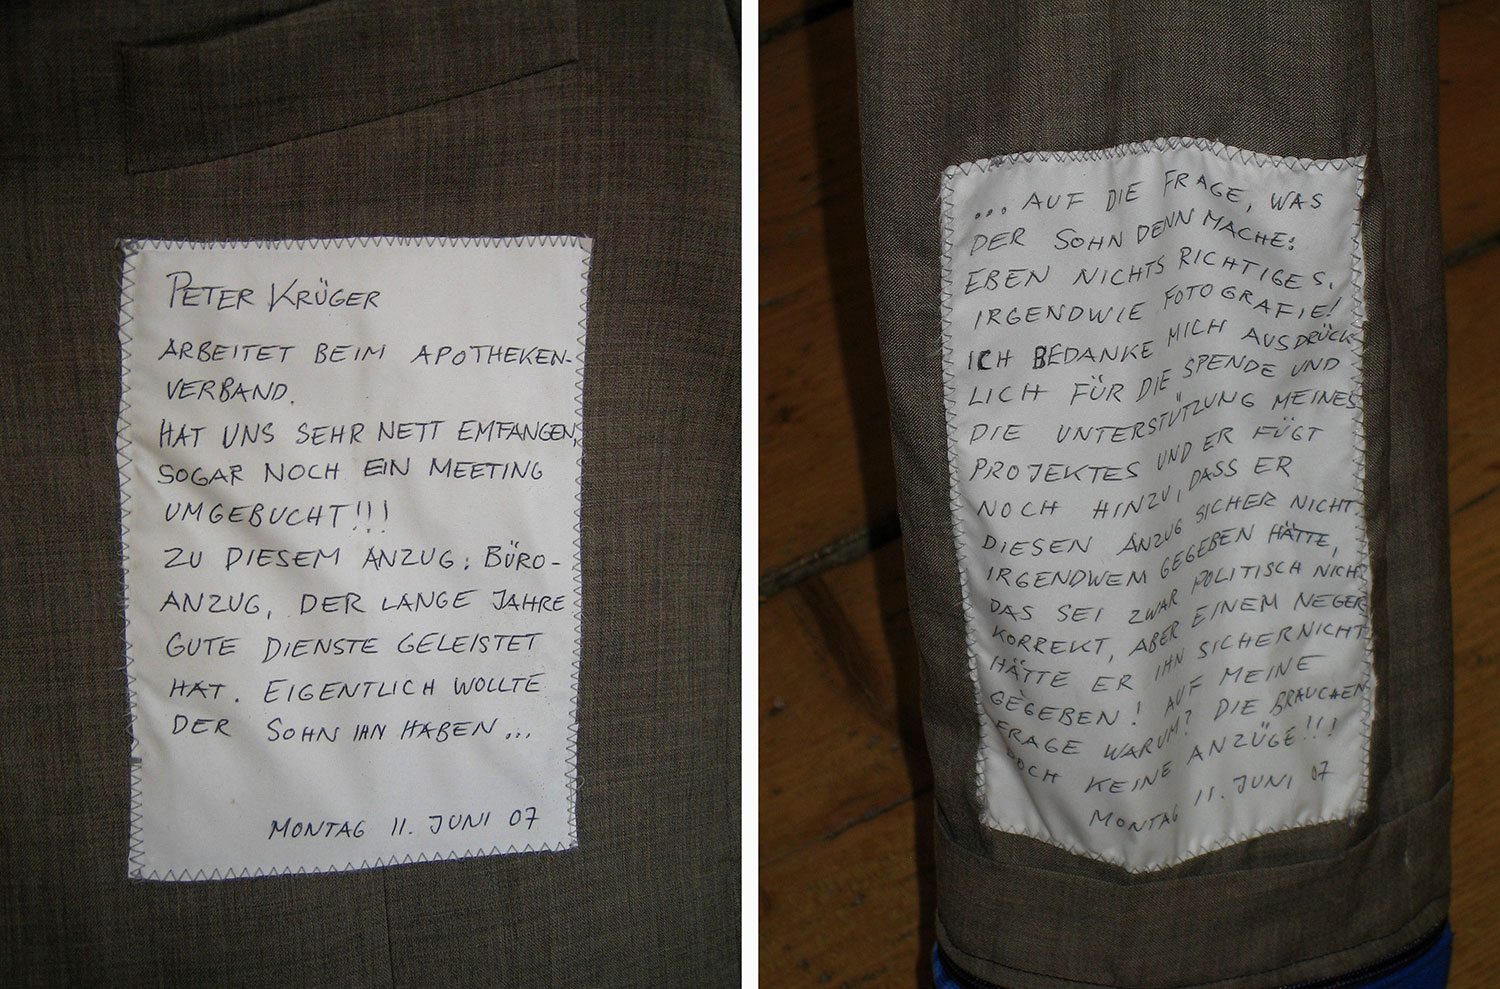 PETER KRÜGER
ARBEITET BEIM APOTHEKEN-
VERBAND.
HAT UNS SEHR NETT EMFANGEN,
SOGAR NOCH EIN MEETING
UMGEBUCHT!!!
ZU DIESEM ANZUG: BÜRO-
ANZUG, DER LANGE JAHRE
GUTE DIENSTE GELEISTET
HAT. EIGENTLICH WOLLTE
DER SOHN IHN HABEN...
MONTAG 11. JUNI 07
... AUF DIE FRAGE, WAS
DER SOHN DENN MACHE:
EBEN NICHTS RICHTIGES.
IRGENDWIE FOTOGRAFIE!
ICH BEDANKE MICH AUSDRÜCK
LICH FÜR DIE SPENDE UND
DIE UNTERSTÜTZUNG MEINES
PROJEKTES UND ER FÜGT
NOCH HINZU, DASS ER
DIESEN ANZUG SICHER NICHT
IRGENDWEM GEGEBEN HÄTTE,
DAS SEI ZWAR POLITISCH NICHT
KORREKT, ABER EINEM NEGER
HÄTTE ER IHN SICHER NICHT
GEGEBEN! AUF MEINE
FRAGE WARUM? DIE BRAUCHEN
DOCH KEINE ANZÜGE!!!
MONTAG 11. JUNI 07